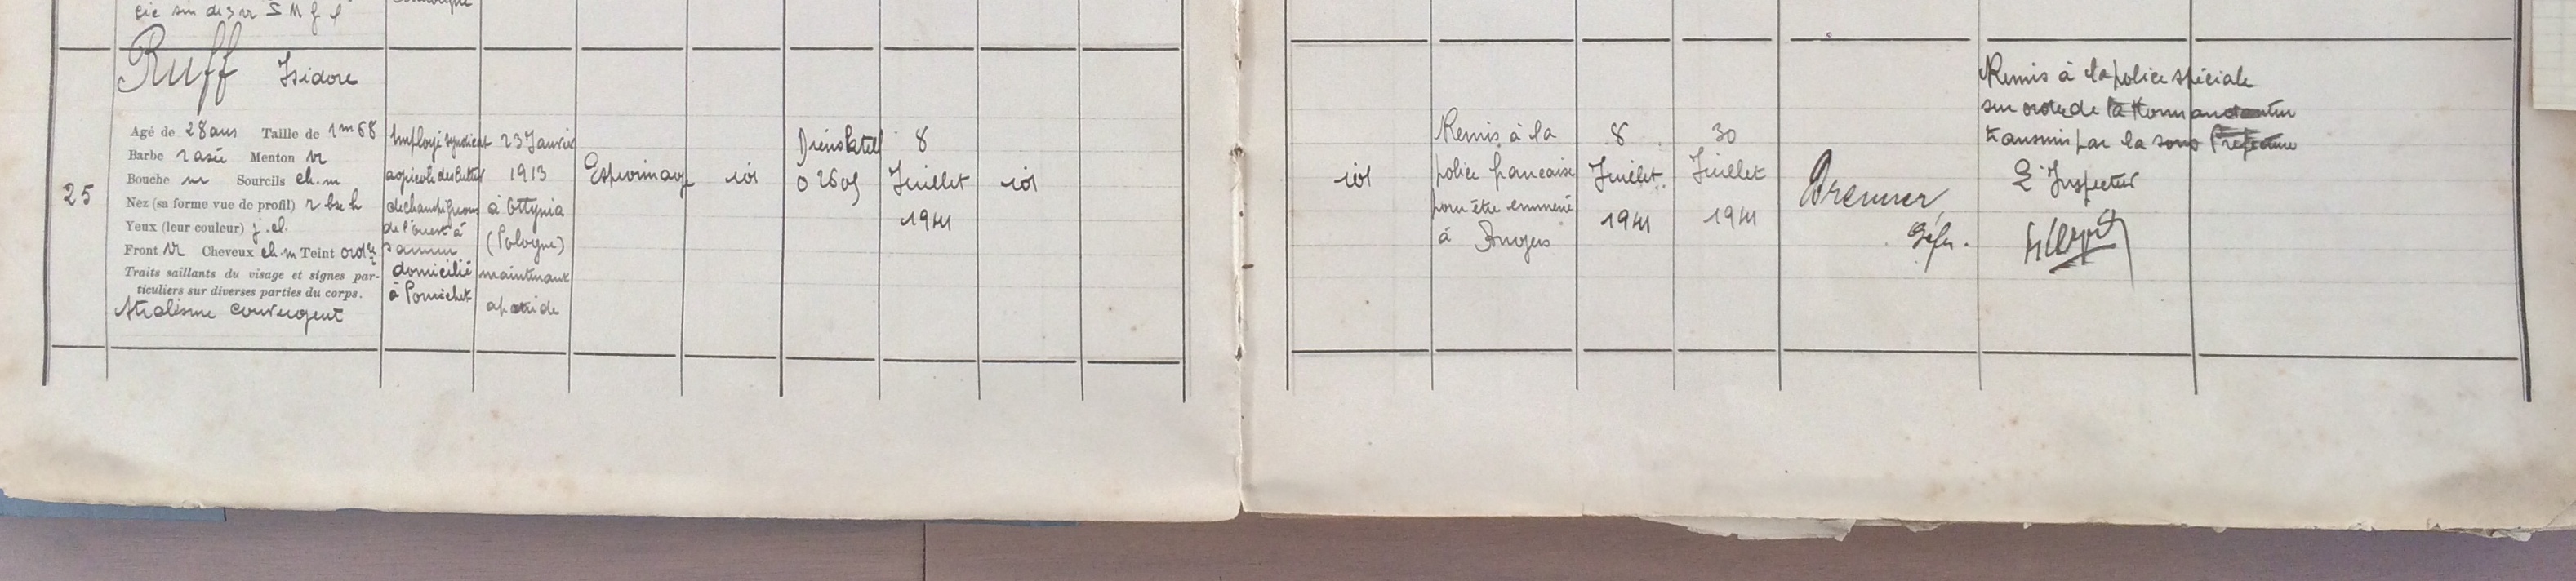 25
Ruff Isidore
Agé de 28 ans Taille de 1m68
Barbe rasée Menton vr
Bouche m Sourcils ch.m
Nez (sa forme vue de profil) r bse h
Yeux (leur couleur) j.cl.
Front vr Cheveux ch.m Teint ordre
Traits saillants du visage et signes par-
ticuliers sur diverses parties du corps.
Strabisme convergent
Employé syndicat
agricole des cultes
de champignons
de l'ouest à
Saumur
domicilié
à Pornichet
23 Janvier
1913
à Ottynia
(Pologne)
maintenant
apatride
Espionnage
ici
02605
8
Juillet
1941
ici
ici
Remis à la
police française
pour être emmené
à Angers
8
Juillet
1941
30
Juillet
1941
Brenner,
Gefr.
Remis à la police spéciale
sur ordre de la Kommandantur
transmis par la sous Préfecture
L'Inspecteur